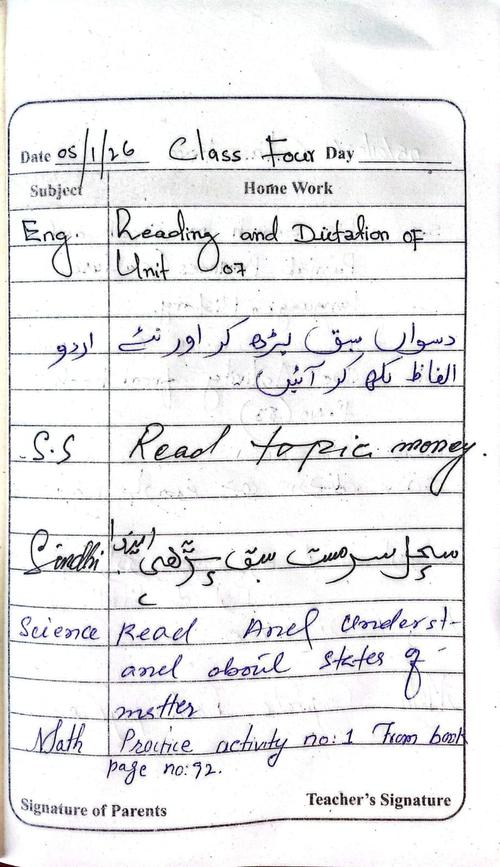 Date 05/1/26 Class Four Day
Subject Home Work
Eng. Reading and Dictation of
Unit 07
اردو دسواں سبق پڑھ کر اور نئے
الفاظ لکھ کر آئیں
S.S Read topic money.
Sindhi سچل سرمست سبق پڙهي
Science Read And Underst-
and about states of
matter
Math Practice activity no:1 From book
page no:92.
Signature of Parents Teacher's Signature